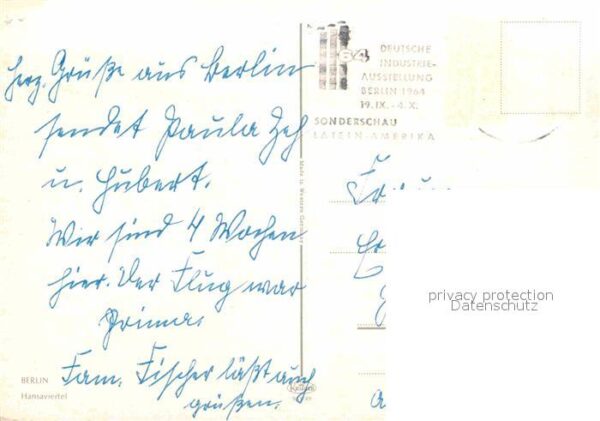 Herz. Grüße aus Berlin
sendet Paula Zeh
u. Hubert.
Wir sind 4 Wochen
hier. Der Flug war
Prima.
Fam. Fischer läßt auch
grüßen.
BERLIN
Hansaviertel
64
DEUTSCHE
INDUSTRIE-
AUSSTELLUNG
BERLIN 1964
19.IX.-4.X.
SONDERSCHAU
LATEIN-AMERIKA
privacy protection
Datenschutz